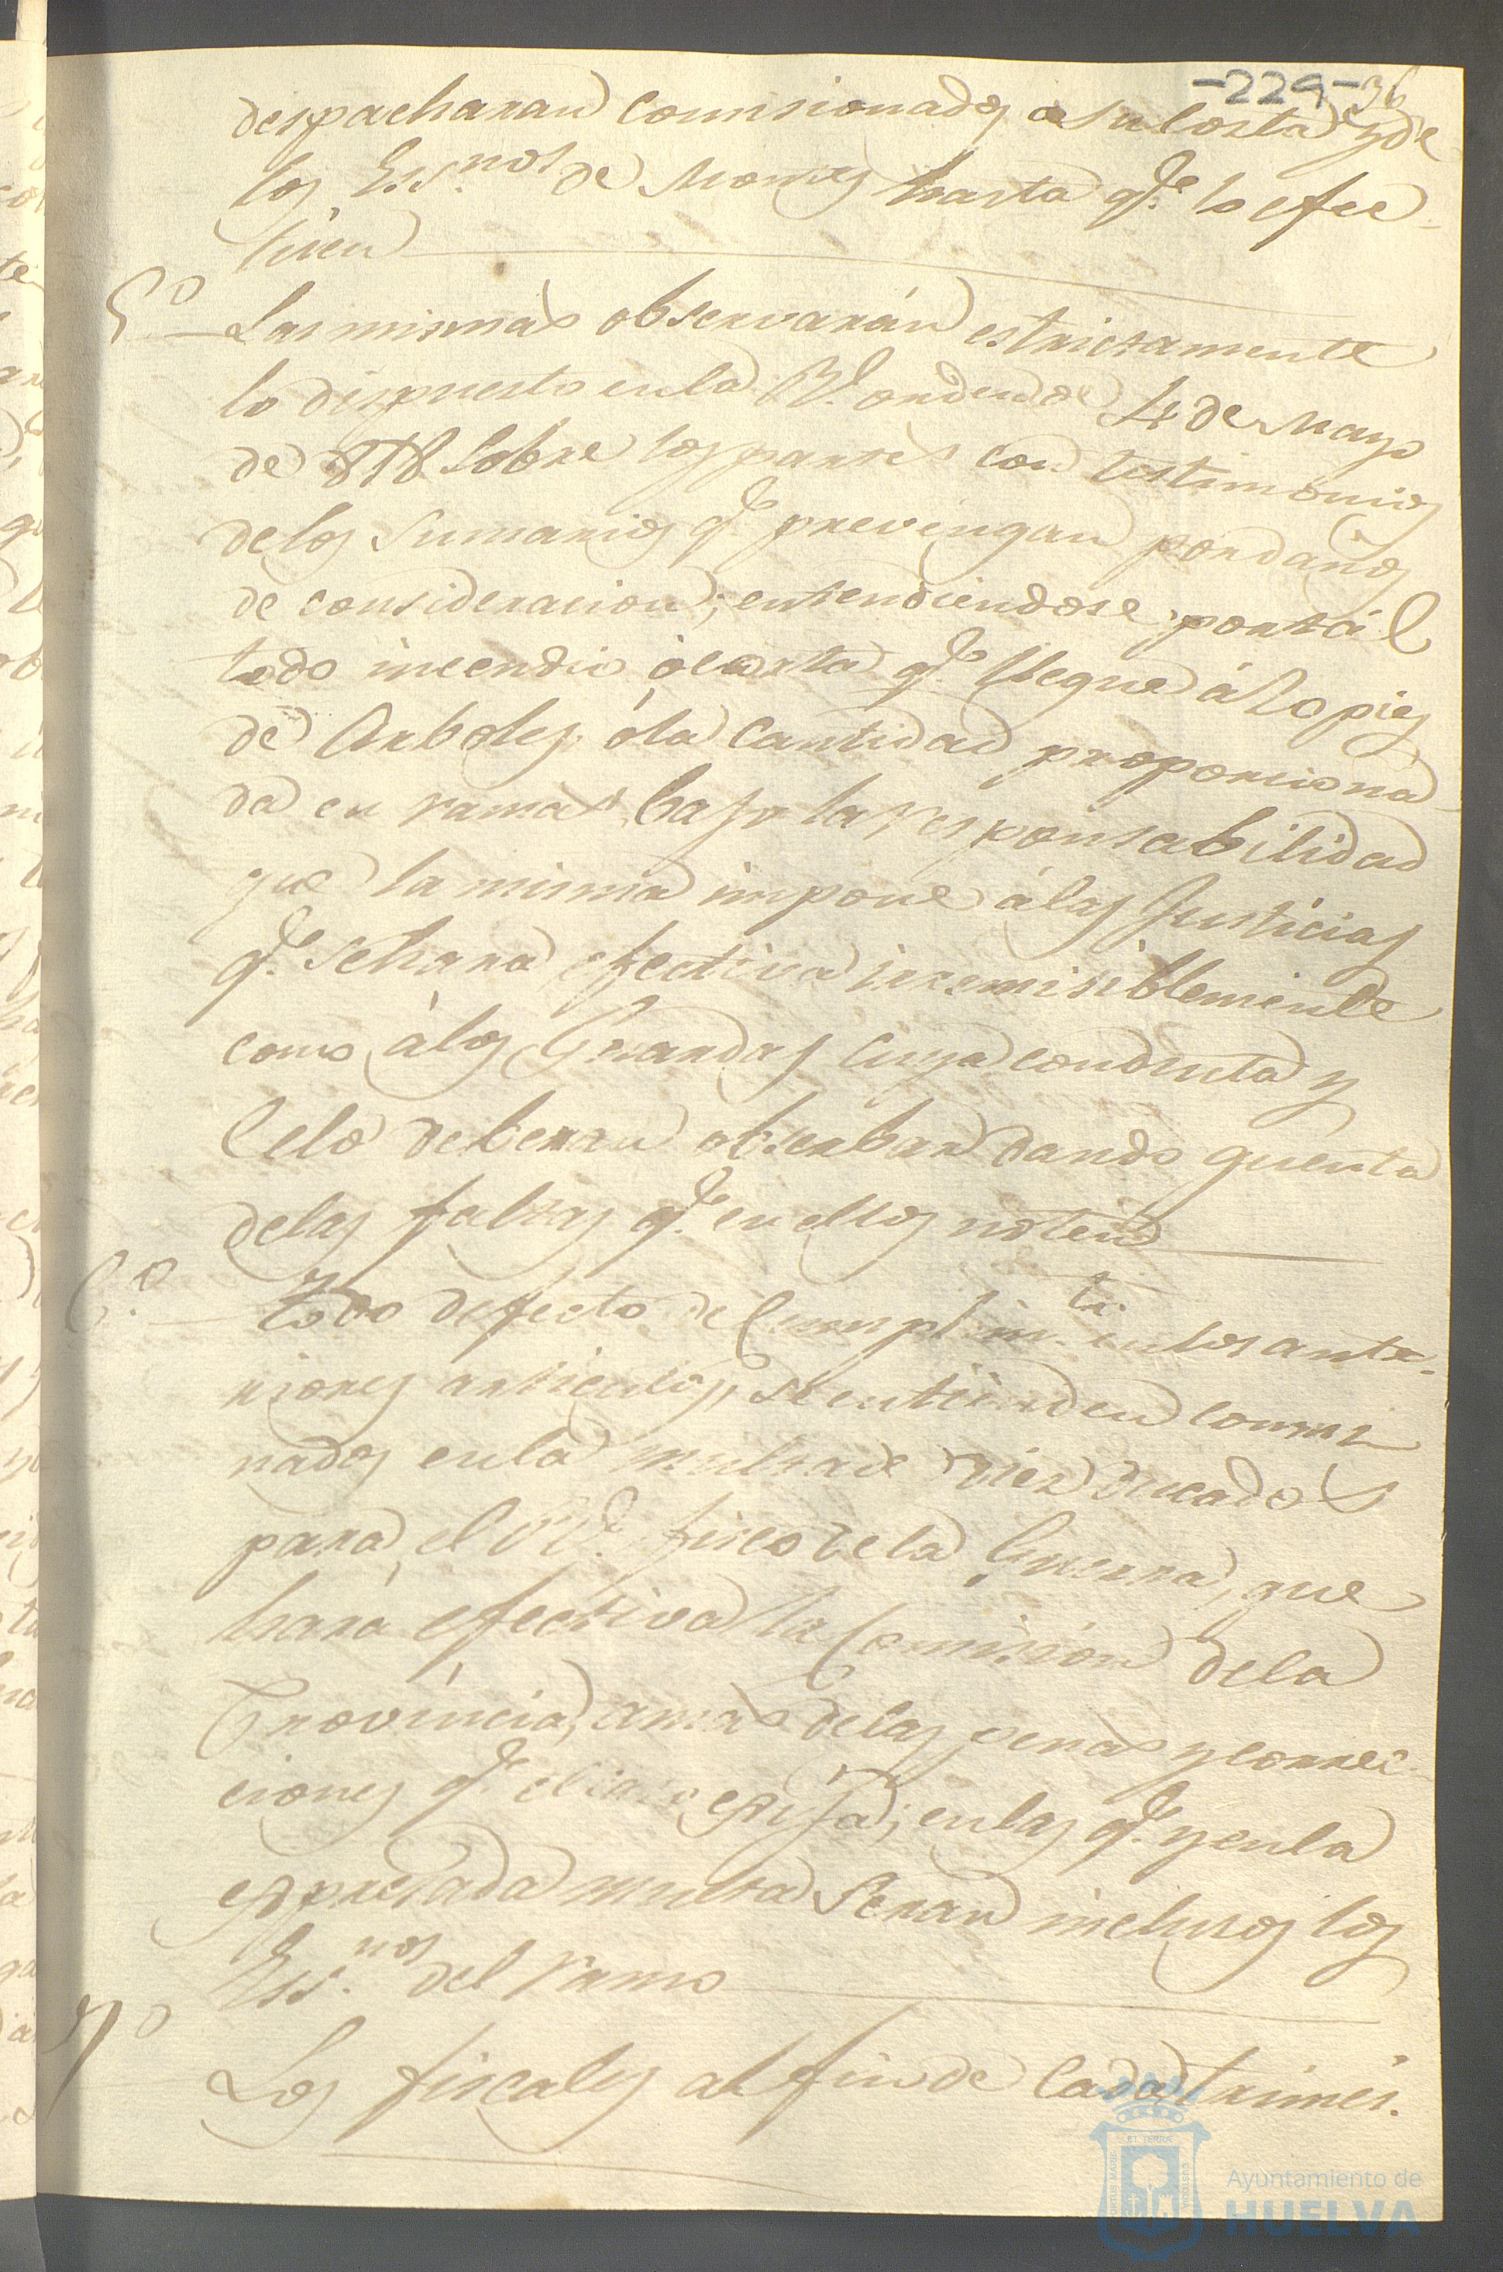 -229- 36
despacharan comisionados a su costa y de
los Ess.nos de Montes hasta q.e lo efec-
tuen
5º Las mismas observarán estrictamente
lo dispuesto en la Rl. orden de 14 de Mayo
de 818 sobre los partes con testimonios
de los Sumarios q.e prevengan por daños
de consideracion; entendiendose por tál
todo incendio ó corta q.e llegue á 20 pies
de Arboles, ó la cantidad proporciona-
da en ramas, bajo la responsabilidad
que la misma impone á las Justicias
q.e se hará efectiva irremisiblemente
como á los Guardas cuya conducta y
Celo deberan obserbar dando quenta
de las faltas q.e en ellos noten
6.º todo defecto de Cumplim.to en los ante-
riores articulos, se entienden conmi
nados en la multa de diez ducados
para el Rl. fisco de la Guerra, que
hará efectiva la Comision de la
Provincia, á mas de las penas y correc-
ciones q.e el caso exija; en las q.e y en la
expresada multa Seran inclusos los
Ess.nos del ramo
7º Los fiscales al fin de cada trimes.
ET TERRÆ
Ayuntamiento de
HUELVA